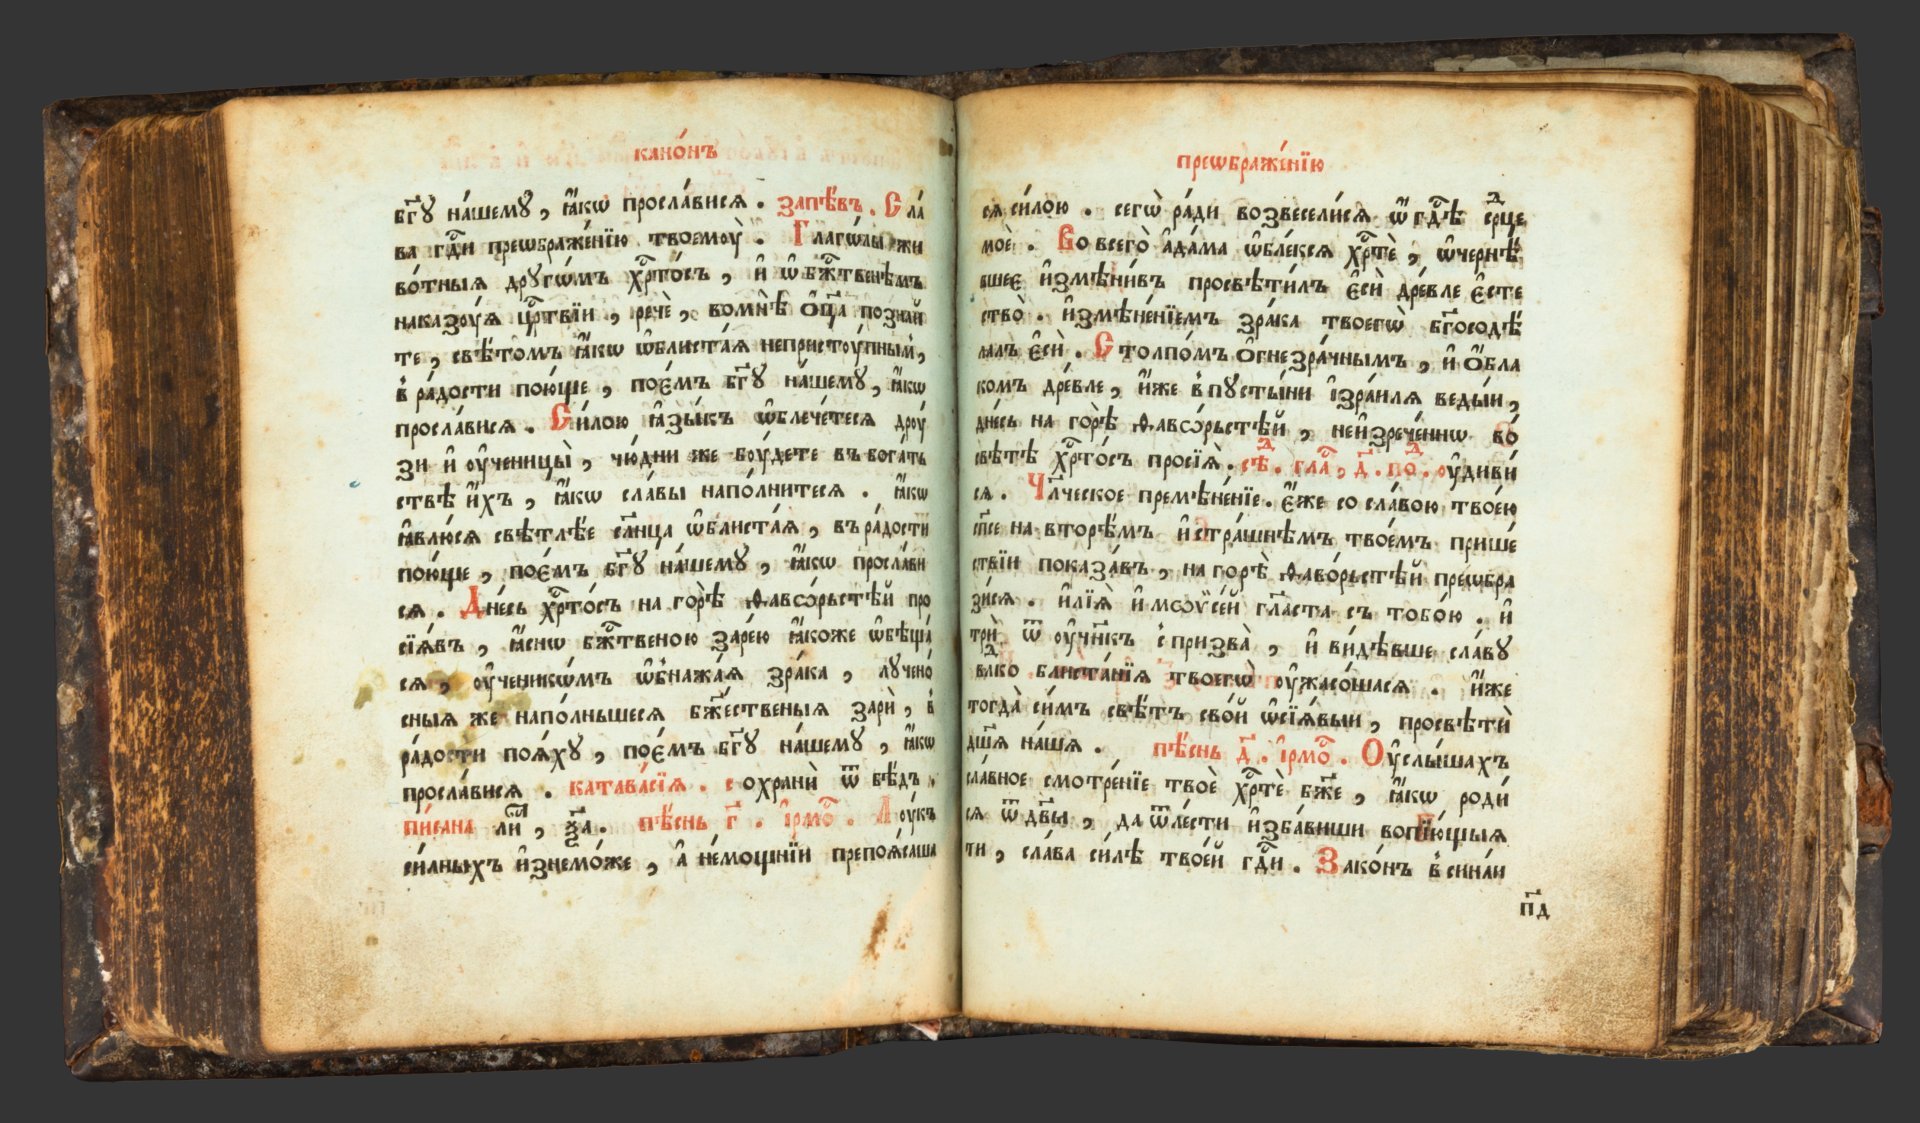 канѡ́нъ
бг҃ꙋ на́шемꙋ , ꙗ҆́кѡ просла́висѧ . запѣ́въ . Сла́
ва гдⷭ҇и преѡбраже́нїю твоемоу̀ . Глаго́лы жи
во́тныѧ дрꙋгѡ́мъ хрⷭ҇то́съ , и҆ ѡ҆ бжⷭ҇твенѣмъ
наказꙋ́ѧ црⷭ҇твїи , речѐ , во мнѣ̀ ѻ҆ц҃а позна́й
те , свѣ́томъ ꙗ҆́кѡ ѡ҆блиста́ѧ непристоу́пным̾ ,
в̾ ра́дости пою́ще , пое́мъ бг҃ꙋ на́шемꙋ , ꙗ҆́кѡ
просла́висѧ . Си́лою ꙗ҆зы́къ ѡ҆блече́тесѧ дрꙋ́
зи и҆ оу҆ченицы̀ , чю́дни же боу́дете въ бога́ть
ствѣ и҆́хъ , ꙗ҆́кѡ сла́вы напо́лнитесѧ . ꙗ҆́кѡ
ꙗ҆влю́сѧ свѣтлѣ́е сл҃нца ѡ҆блиста́ѧ , въ ра́дости
пою́ще , пое́мъ бг҃ꙋ на́шемꙋ , ꙗ҆́кѡ просла́ви
сѧ . Дне́сь хрⷭ҇то́съ на горѣ̀ ѳавѡ́рьстѣй про
сїѧ́въ , ꙗ҆́снѡ бжⷭ҇твеною заре́ю ꙗ҆́коже ѡ҆бѣща́
сѧ , оу҆ченикѡ́мъ ѡ҆бнажа́ѧ зра́ка , лꙋчено́
сныѧ же напо́лньшесѧ бж҃ественыѧ зарѝ , в̾
ра́дости поѧ́хꙋ , пое́мъ бг҃ꙋ на́шемꙋ , ꙗ҆́кѡ
просла́висѧ . катава́сїѧ . сохранѝ ѿ бѣ́дъ .
пи́сана ли́ , ѯ҃а . пѣ́снь г҃ . і҆рмоⷭ҇ . Лоу́къ
си́лныхъ и҆знемо́же , а҆ не́мощнїи препоѧ́саша
преѡбраже́нїю
сѧ си́лою . сегѡ̀ ра́ди возвесели́сѧ ѡ҆́ гдⷭ҇ѣ срⷣце
моѐ . Во всего̀ а҆да́ма ѡ҆бле́ксѧ хрⷭ҇тѐ , ѡ҆чернѣ́
вшеє и҆змѣни́въ просвѣти́лъ є҆сѝ дре́вле є҆сте
ство̀ . и҆змѣне́нїемъ зра́ка твоегѡ̀ бг҃осодѣ́
лалъ є҆сѝ . Столпо́мъ ѻ҆гнезра́чнымъ , и҆ ѻ҆́бла
комъ дре́вле , и҆́же в̾ пꙋсты́ни і҆зра́илѧ веды́и ,
дне́сь на горѣ̀ ѳавѡ́рьстѣй , неи҆зрече́ннѡ во́
свѣтѣ хрⷭ҇то́съ просїѧ̀ . сѣⷣ . глаⷭ҇ , д҃ . поⷣ . оу҆диви́
сѧ . Чл҃ческое премѣне́нїе . є҆́же со сла́вою твое́ю
сп҃се на вторѣ́мъ и҆ стра́шнѣмъ твое́мъ прише́
ствїи показа́въ , на горѣ̀ ѳаво́рьстѣй преѡбра
зи́сѧ . и҆лїѧ̀ и҆ мѡѷсе́й гл҃аста съ тобо́ю . и҆
трѝ ѿ оу҆чн҃къ с̾призва̀ , и҆ ви́дѣвше сла́вꙋ
влⷣко блиста́нїѧ твоегѡ̀ оу҆жасо́шасѧ . и҆́же
тогда̀ си́мъ свѣ́тъ сво́й ѡ҆сїѧ́выи , просвѣтѝ
дш҃ѧ на́шѧ . пѣ́снь д҃ . і҆рмоⷭ҇ . Оу҆слы́шахъ
сла́вное смотре́нїе твоѐ хрⷭ҇тѐ бж҃е , ꙗ҆́кѡ роди́
сѧ ѿ дв҃ы , да ѿ ле́сти и҆зба́виши вопїю́щыѧ
ти , сла́ва си́лѣ твое́й гдⷭ҇и . Зако́нъ в̾ сина́и
п҃д